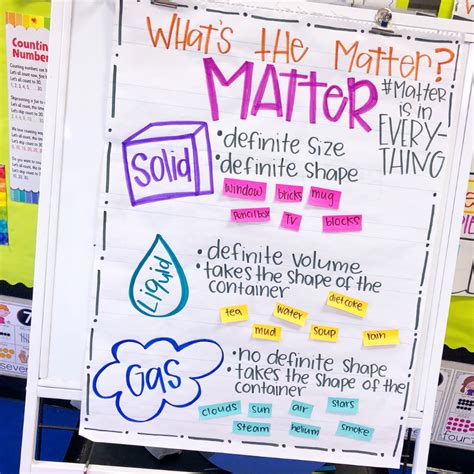 What's the Matter?
MATTER
#Matter
is in
EVERY-
THING
Solid
•definite Size
•definite Shape
window bricks mug
Pencil box TV blocks
Liquid
•definite volume
•takes the shape of the
container
tea water dietcoke
mud soup rain
Gas
•no definite shape
•takes the shape of the
container
clouds sun air stars
steam helium smoke
Counting
Number